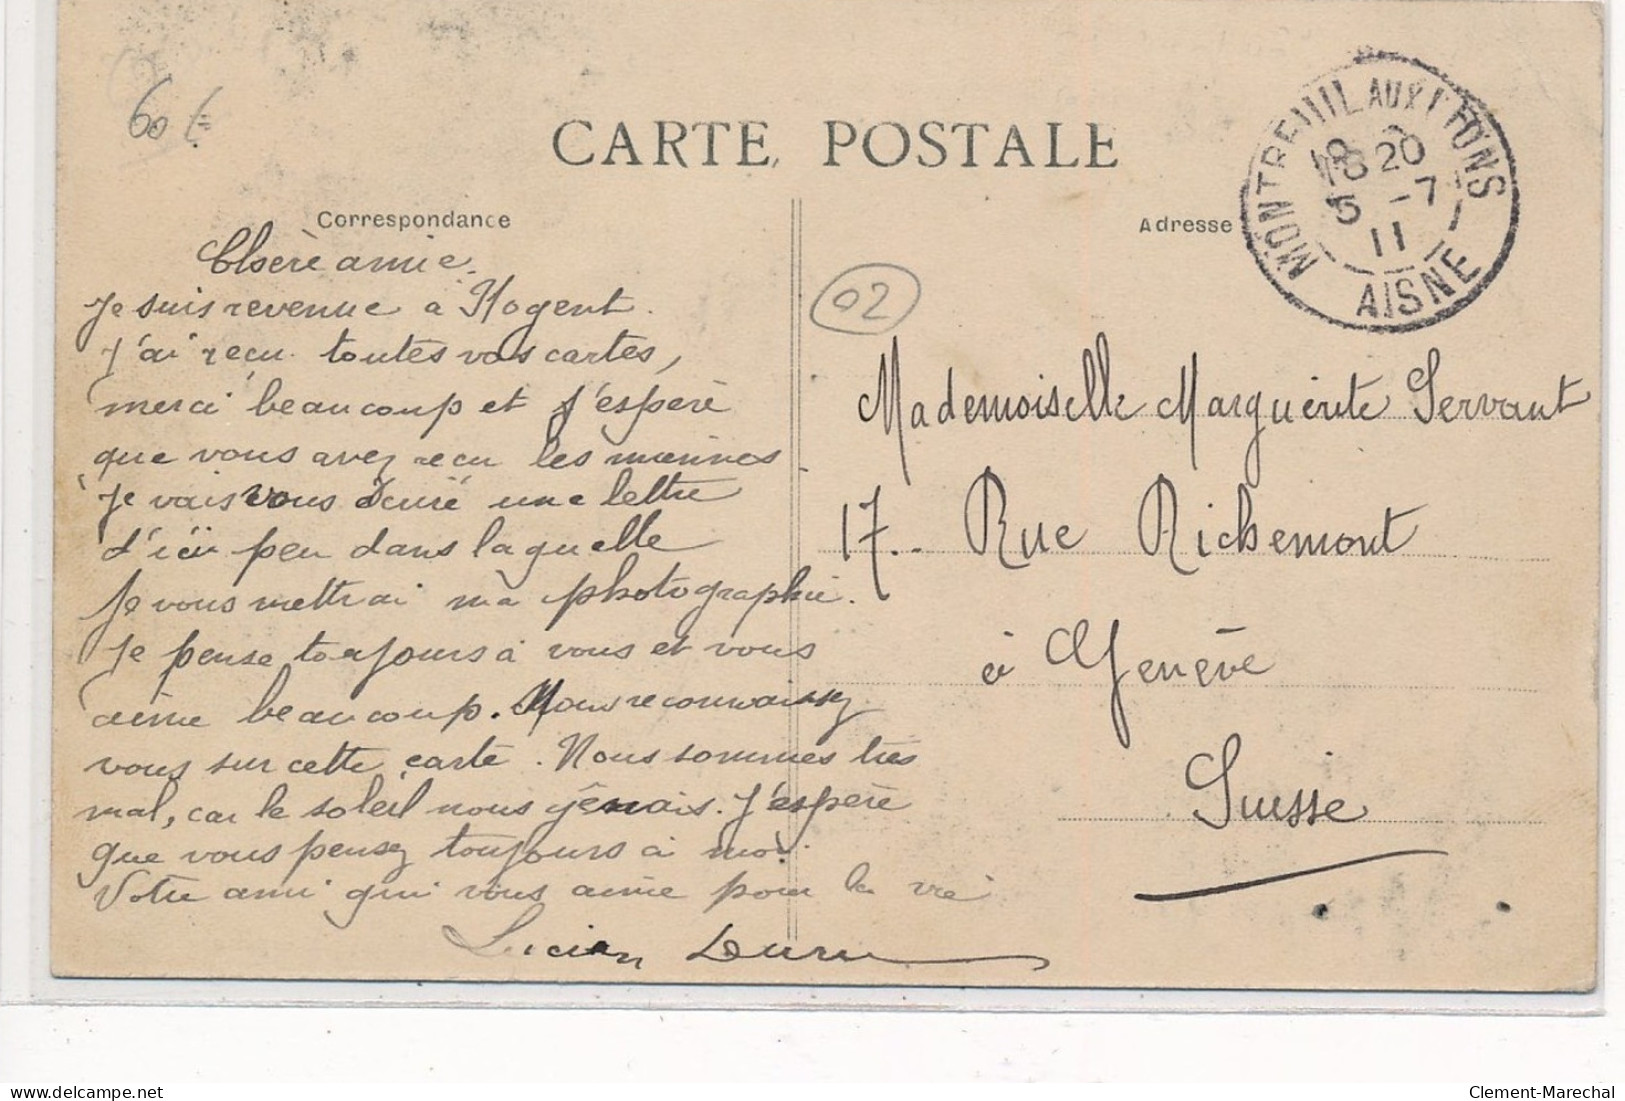 60 €
CARTE POSTALE
MONTREUIL AUX LIONS
18 20
5 -7
11
AISNE
Correspondance
Adresse
02
Chère amie.
Je suis revenue à Nogent.
J'ai reçu toutes vos cartes,
merci beaucoup et j'espère
que vous avez recu les miennes
Je vais vous une lettre
d'ici peu dans laquelle
Je vous mettrai ma photographie.
Je pense toujours à vous et vous
aime beaucoup. Nous reconnaissez
vous sur cette carte. Nous sommes très
mal, car le soleil nous gênais. J'espère
que vous pensez toujours à moi.
Votre ami qui vous aime pour la vie
Lucien
Mademoiselle Marguerite Servant
17.. Rue Richemont
à Genève
Suisse
delcampe.net
Clement-Marechal